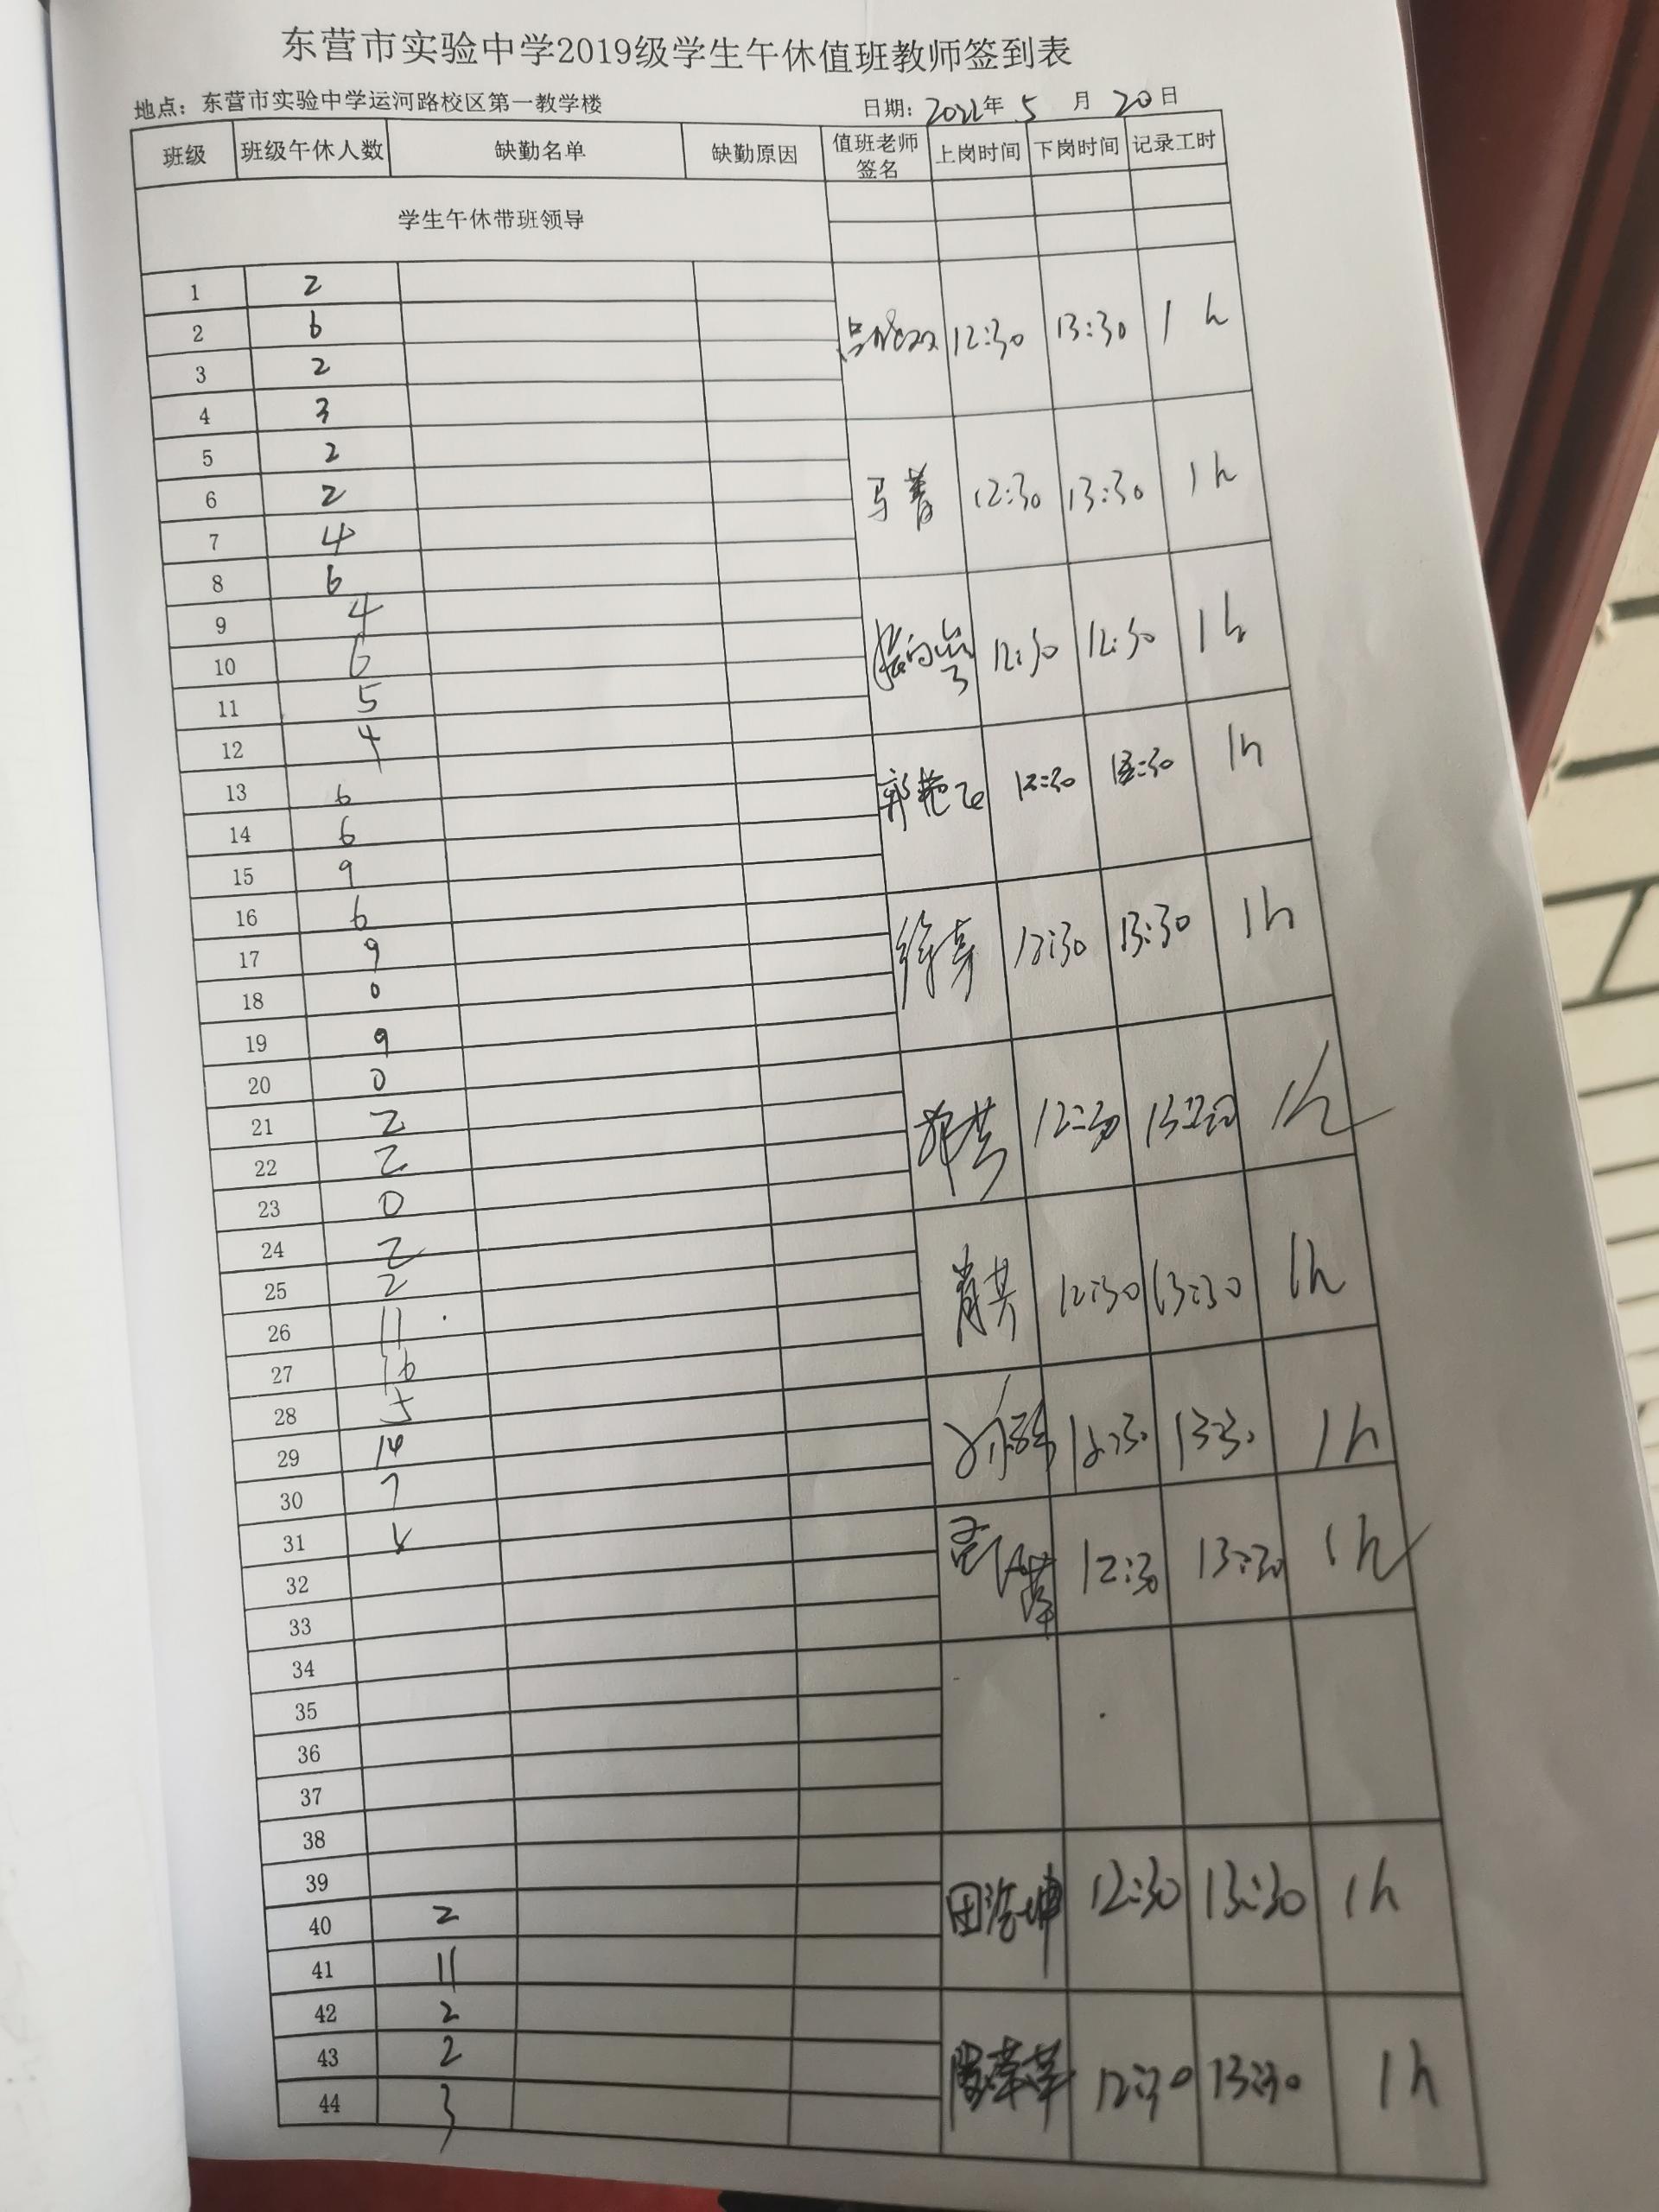 东营市实验中学2019级学生午休值班教师签到表
地点：东营市实验中学运河路校区第一教学楼 日期：2022年 5 月 20日
班级 班级午休人数 缺勤名单 缺勤原因 值班老师签名 上岗时间 下岗时间 记录工时
学生午休带班领导
1 2
2 6
12:30 13:30 1 h
3 2
4 3
5 2
6 2
马菁 12:30 13:30 1h
7 4
8 6
9 4
10 6
12:30 12:30 1h
11 5
12 4
13 6
郭艳飞 12:30 13:30 1h
14 6
15 9
16 6
17 9
12:30 13:30 1h
18 0
19 9
20 0
21 2
12:30 13:30 1h
22 2
23 0
24 2
25 2
12:30 13:30 1h
26 11
27 16
28 5
29 14
12:30 13:30 1h
30 7
31
32
12:30 13:30 1h
33
34
35
36
37
38
39
40 2
田浩坤 12:30 13:30 1h
41 11
42 2
43 2
12:30 13:30 1h
44 3